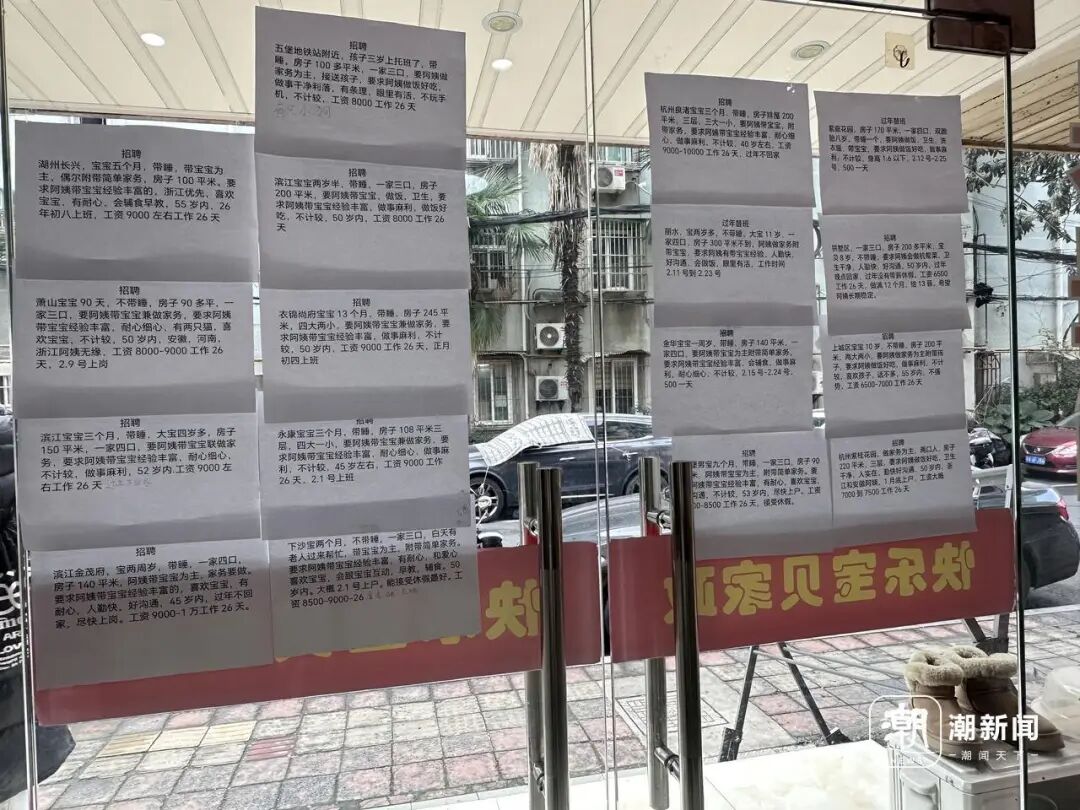 招聘
湖州长兴，宝宝五个月，带睡，带宝宝为
主，偶尔附带简单家务，房子 100 平米。要
求阿姨带宝宝经验丰富的，浙江优先，喜欢
宝宝，有耐心，会辅食早教，55 岁内，26
年初八上班，工资 9000 左右工作 26 天
招聘
萧山宝宝 90 天，不带睡，房子 90 多平，一
家三口，要阿姨带宝宝兼做家务，要求阿姨
带宝宝经验丰富，耐心细心，有两只猫，喜
欢宝宝，不计较，50 岁内，安徽，河南，
浙江阿姨无缘，工资 8000-9000 工作 26
天，2.9 号上岗
招聘
滨江宝宝三个月，带睡，大宝四岁多，房子
150 平米，一家四口，要阿姨带宝宝联做家
务，要求阿姨带宝宝经验丰富，耐心细心，
不计较，做事麻利，52 岁内.工资 9000 左
右工作 26 天
招聘
滨江金茂府，宝宝两周岁，带睡，一家四口，
房子 140 平米，阿姨带宝宝为主，家务要做。
要求阿姨带宝宝经验丰富的，喜欢宝宝，有
耐心，人勤快，好沟通，45 岁内，过年不回
家，尽快上岗。工资 9000-1 万工作 26 天。
招聘
五堡地铁站附近，孩子三岁上托班了，带
睡，房子 100 多平米，一家三口，要阿姨做
家务为主，接送孩子，要求阿姨做饭好吃，
做事干净利落，有条理，眼里有活，不玩手
机，不计较，工资 8000 工作 26 天
招聘
滨江宝宝两岁半，带睡，一家三口，房子
200 平米，要阿姨带宝宝，做饭，卫生，要
求阿姨带宝宝经验丰富，做事麻利，做饭好
吃，不计较，50 岁内，工资 9000 工作 26
天
招聘
衣锦尚府宝宝 13 个月，带睡，房子 245 平
米，四大两小，要阿姨带宝宝兼做家务，要
求阿姨带宝宝经验丰富，做事麻利，不计
较，50 岁内，工资 9000 工作 26 天，正月
初四上班
招聘
永康宝宝三个月，带睡，房子 108 平米三
层，四大一小，要阿姨带宝宝兼做家务，要
求阿姨带宝宝经验丰富，耐心细心，做事麻
利，不计较，45 岁左右，工资 9000 工作
26 天，2.1 号上班
招聘
下沙宝宝两个月，不带睡，一家三口，白天有
老人过来帮忙，带宝宝为主，附带简单家务。
要求阿姨带宝宝经验丰富，有耐心，和爱心
喜欢宝宝，会跟宝宝互动，早教，辅食。50
岁内。大概 2.1 号上户。能接受休假最好，工
资 8500-9000-26
招聘
杭州良渚宝宝三个月，带睡，房子排屋 200
平米，三层，三大一小，要阿姨带宝宝，附
带家务，要求阿姨带宝宝经验丰富，耐心细
心，不计较，40 岁左右，工资
9000-10000 工作 26 天，过年不回家
过年替班
丽水，宝宝两岁多，不带睡，大宝 11 岁，一
家四口，房子 300 平米不到，阿姨做家务附
带宝宝，要求阿姨有带宝宝经验，人勤快，
好沟通，会做饭，眼里有活，工作时间
2.11 号到 2.23 号
招聘
金华宝宝一周岁，带睡，房子 140 平米，一
家四口，要阿姨带宝宝为主附带简单家务，
要求阿姨带宝宝经验丰富，会辅食，做事麻
利，耐心细心，不计较，2.15 号-2.24 号，
500 一天
招聘
男宝九个月，不带睡，一家三口，房子 90
带宝宝为主，附带简单家务。要
带宝宝经验丰富，有耐心，喜欢宝宝，
沟通，不计较，53 岁内，尽快上户，工资
0-8500 工作 26 天，接受休假。
过年替班
紫庭花园，房子 170 平米，一家四口，双胞
胎八岁，带睡一个，要阿姨做饭，卫生，洗
衣服，带宝宝，要求阿姨做饭好吃，做事麻
利，不计较，身高 1.6 以下，2.12 号-2.25
号，500 一天
招聘
拱墅区，一家三口，房子 200 多平米，宝
贝 8 岁，不带睡，要求阿姨会做杭帮菜，卫
生干净，人勤快，好沟通，50 岁内，过年
晚点回家，过年没有带薪休假，工资 6500
工作 26 天，做满 12 个月，给 13 薪，希望
阿姨长期稳定。
招聘
上城区宝宝 10 岁，不带睡，房子 200 平
米，两大两小，要阿姨做家务为主附带孩
子，要求阿姨做饭好吃，做事麻利，不计
较，喜欢孩子，话不多，55 岁内，不强
势，工资 6500-7000 工作 26 天
招聘
杭州紫桂花园，做家务为主，两口人，房子
220 平米，三层，要求阿姨做饭好吃，卫生
干净，人实在，勤快好沟通，50 岁内，浙
江和安徽阿姨，1 月底上户，工资大概
7000 到 7500 工作 26 天
快乐宝贝家政
潮新闻
潮闻天下